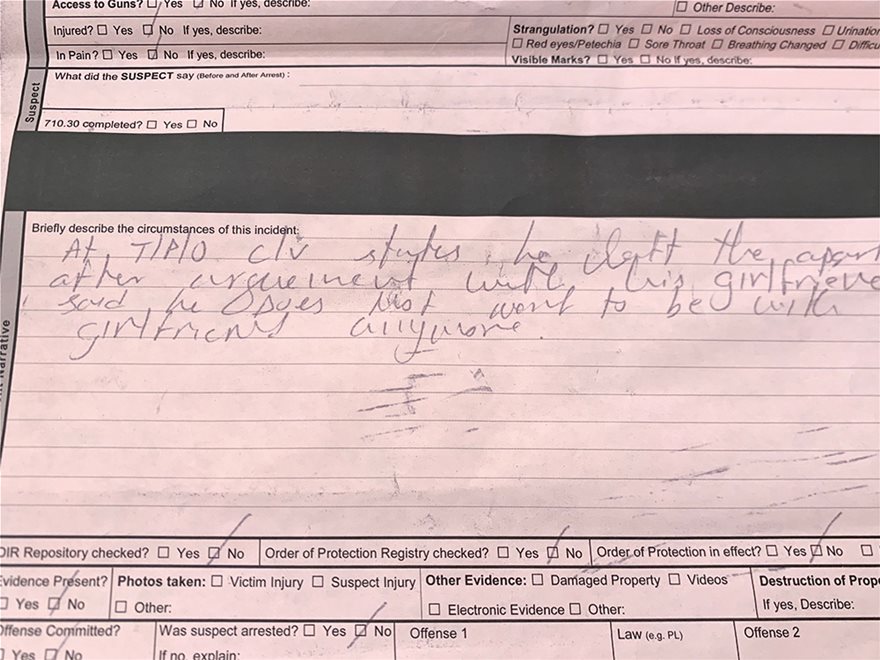 Access to Guns? ☐ Yes ☑ No If yes, describe:
☐ Other Describe:
Injured? ☐ Yes ☑ No If yes, describe:
Strangulation? ☐ Yes ☐ No ☐ Loss of Consciousness ☐ Urination
In Pain? ☐ Yes ☑ No If yes, describe:
☐ Red eyes/Petechia ☐ Sore Throat ☐ Breathing Changed ☐ Difficu
Visible Marks? ☐ Yes ☐ No If yes, describe:
Suspect
What did the SUSPECT say (Before and After Arrest) :
710.30 completed? ☐ Yes ☐ No
Narrative
Briefly describe the circumstances of this incident:
At T/P/O c/v states he left the apart
after arguement with his girlfriend
said he Does Not want to be with
girlfriend anymore.
DIR Repository checked? ☐ Yes ☑ No Order of Protection Registry checked? ☐ Yes ☑ No Order of Protection in effect? ☐ Yes ☑ No ☐
Evidence Present? Photos taken: ☐ Victim Injury ☐ Suspect Injury Other Evidence: ☐ Damaged Property ☐ Videos Destruction of Prope
☐ Yes ☑ No ☐ Other: ☐ Electronic Evidence ☐ Other: If yes, Describe:
Offense Committed? Was suspect arrested? ☐ Yes ☑ No Offense 1 Law (e.g. PL) Offense 2
☐ Yes ☑ No If no, explain: